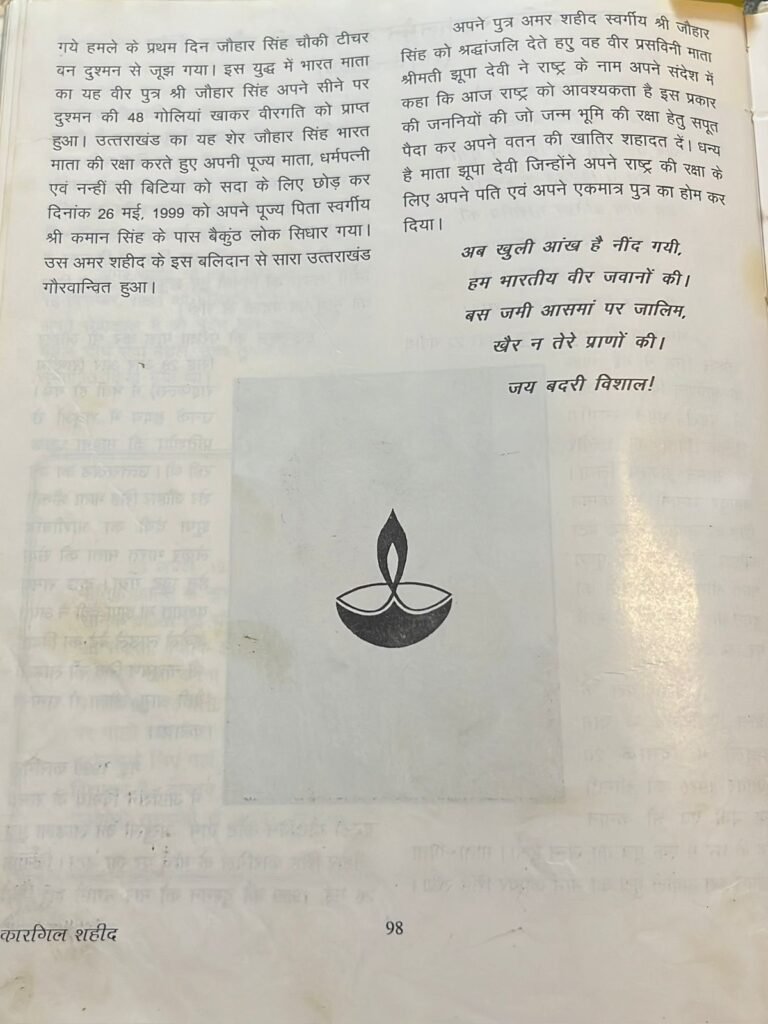 गये हमले के प्रथम दिन जौहार सिंह चौकी टीचर
बन दुश्मन से जूझ गया। इस युद्ध में भारत माता
का यह वीर पुत्र श्री जौहार सिंह अपने सीने पर
दुश्मन की 48 गोलियां खाकर वीरगति को प्राप्त
हुआ। उत्तराखंड का यह शेर जौहार सिंह भारत
माता की रक्षा करते हुए अपनी पूज्य माता, धर्मपत्नी
एवं नन्हीं सी बिटिया को सदा के लिए छोड़ कर
दिनांक 26 मई, 1999 को अपने पूज्य पिता स्वर्गीय
श्री कमान सिंह के पास बैकुंठ लोक सिधार गया।
उस अमर शहीद के इस बलिदान से सारा उत्तराखंड
गौरवान्वित हुआ।
अपने पुत्र अमर शहीद स्वर्गीय श्री जौहार
सिंह को श्रद्धांजलि देते हएु वह वीर प्रसविनी माता
श्रीमती झूपा देवी ने राष्ट्र के नाम अपने संदेश में
कहा कि आज राष्ट्र को आवश्यकता है इस प्रकार
की जननियों की जो जन्म भूमि की रक्षा हेतु सपूत
पैदा कर अपने वतन की खातिर शहादत दें। धन्य
है माता झूपा देवी जिन्होंने अपने राष्ट्र की रक्षा के
लिए अपने पति एवं अपने एकमात्र पुत्र का होम कर
दिया।
अब खुली आंख है नींद गयी,
हम भारतीय वीर जवानों की।
बस जमी आसमां पर जालिम,
खैर न तेरे प्राणों की।
जय बदरी विशाल!
कारगिल शहीद
98